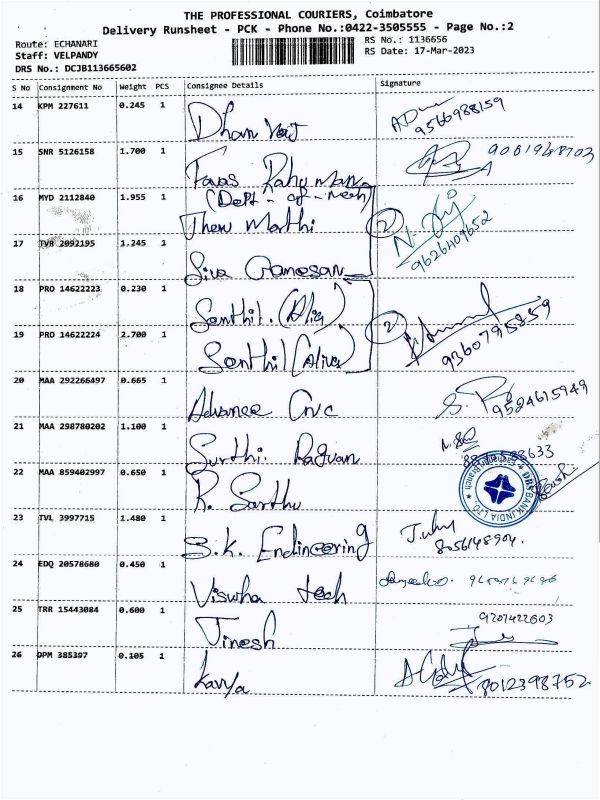 THE PROFESSIONAL COURIERS, Coimbatore
Delivery Runsheet - PCK - Phone No.:0422-3505555 - Page No.:2
Route: ECHANARI
RS No.: 1136656
Staff: VELPANDY
RS Date: 17-Mar-2023
DRS No.: DCJB113665602
S No Consignment No Weight PCS Consignee Details Signature
14 KPM 227611 0.245 1 Dhan
9566988159
15 SNR 5126158 1.700 1 Rahuman
(Dept - of -
16 MYD 2112840 1.955 1 Moorthi
2
17 TVR 2092195 1.245 1 Siva Ganesan
9626409652
18 PRO 14622223 0.230 1 Senthil.
2
19 PRO 14622224 2.700 1 Senthil
9360795859
20 MAA 292266497 0.665 1 Advance Cnc
9524615949
21 MAA 298780202 1.100 1 Surthi. Raguvan
22 MAA 859402997 0.650 1 K.
DBS BANK INDIA LTD.
23 TVL 3997715 1.480 1 S.K. Engineering
8056148904.
24 EDQ 20578680 0.450 1 Viswha tech
25 TRR 15443084 0.600 1 Jinesh
26 DPM 385397 0.105 1 Kavya
8012398752